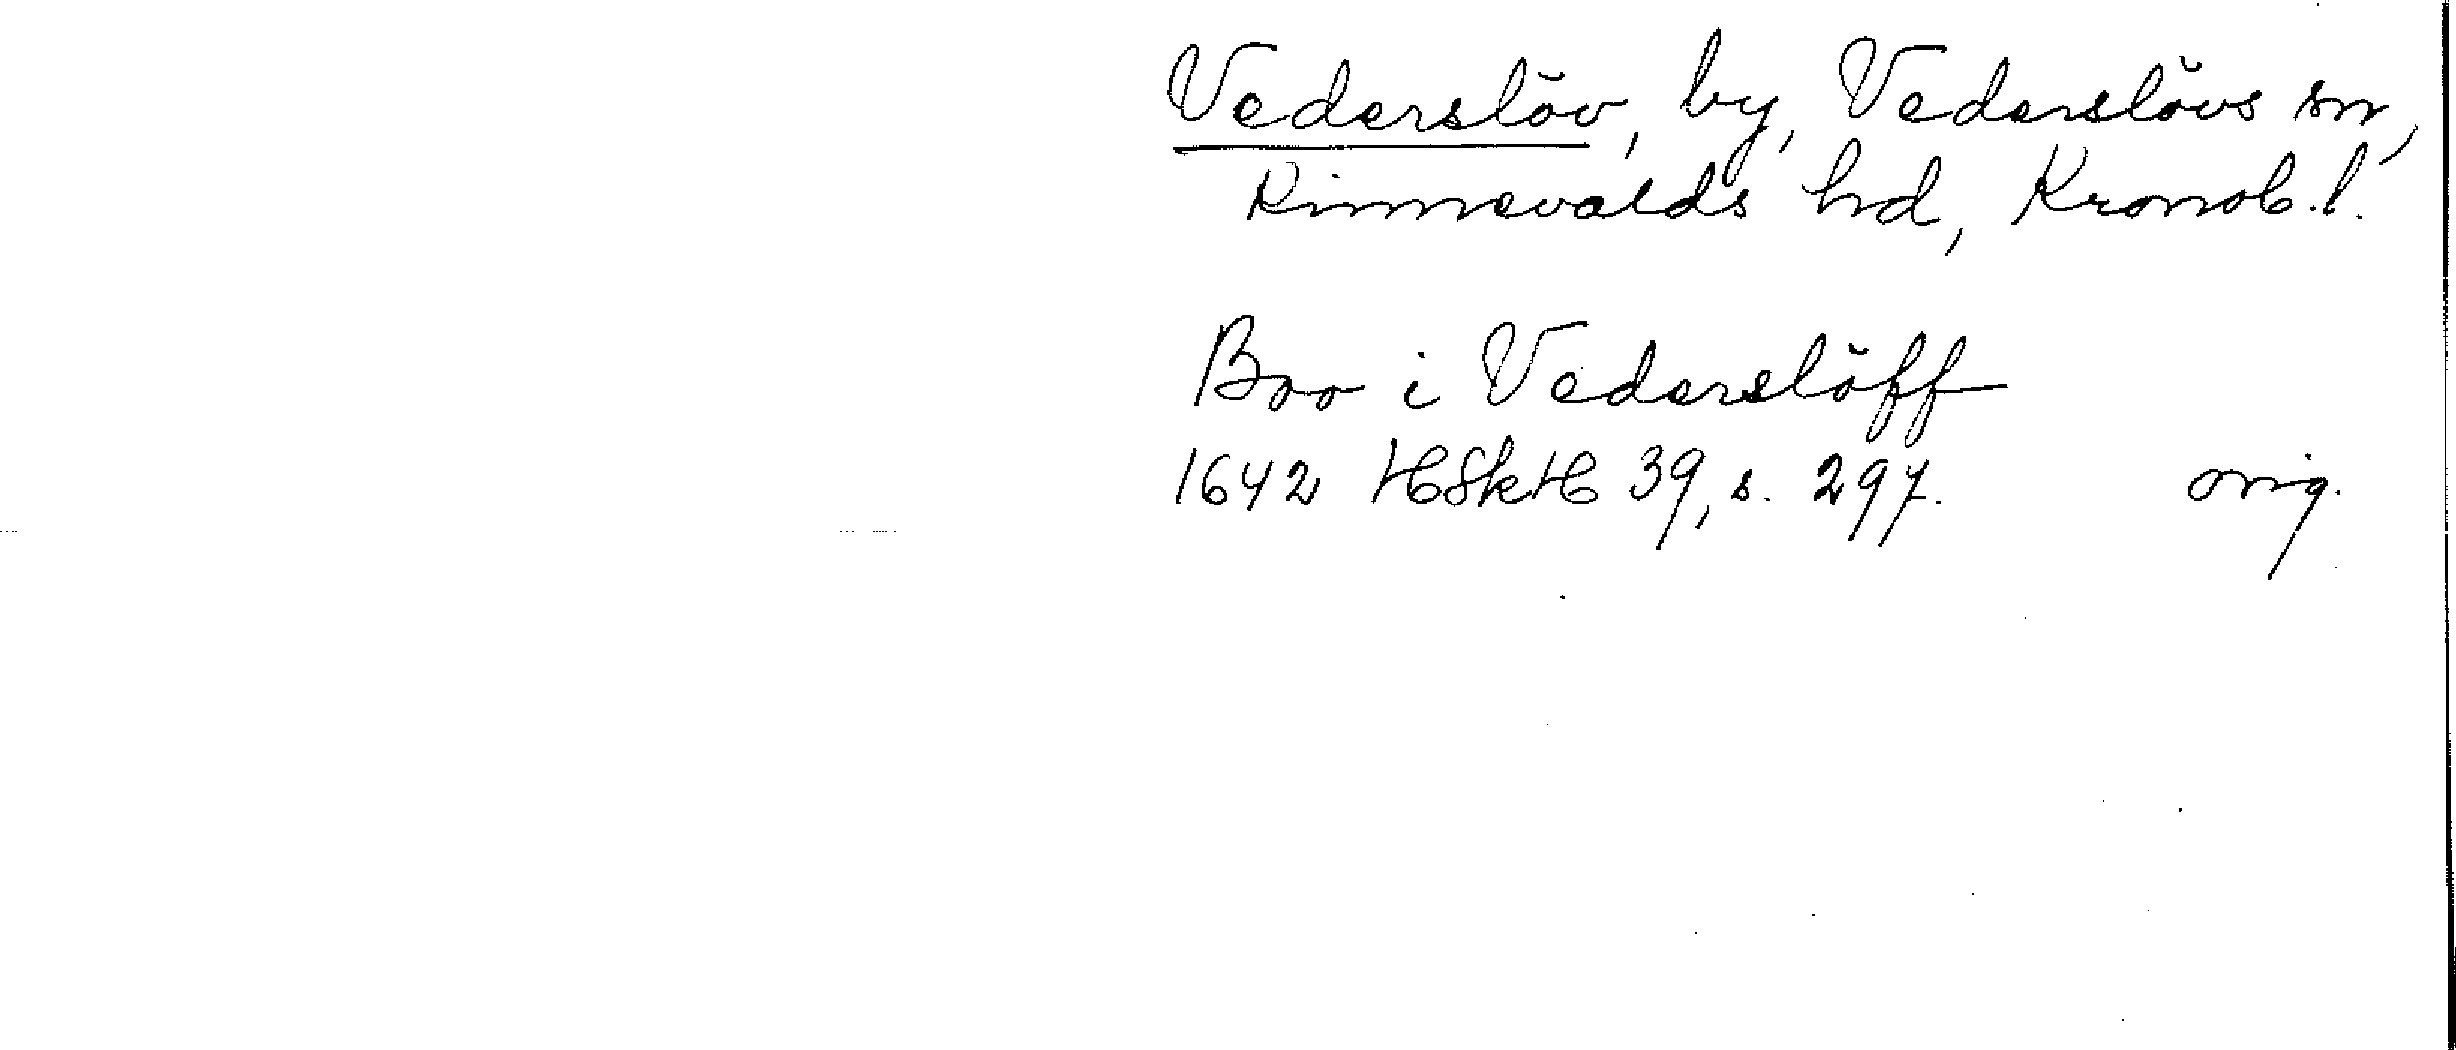 Vederslöv, by, Vederslövs sn,
Kinnevalds hd, Kronob. l.
Boo i Vederslöff
1642 HSkH 39, s. 297. orig.